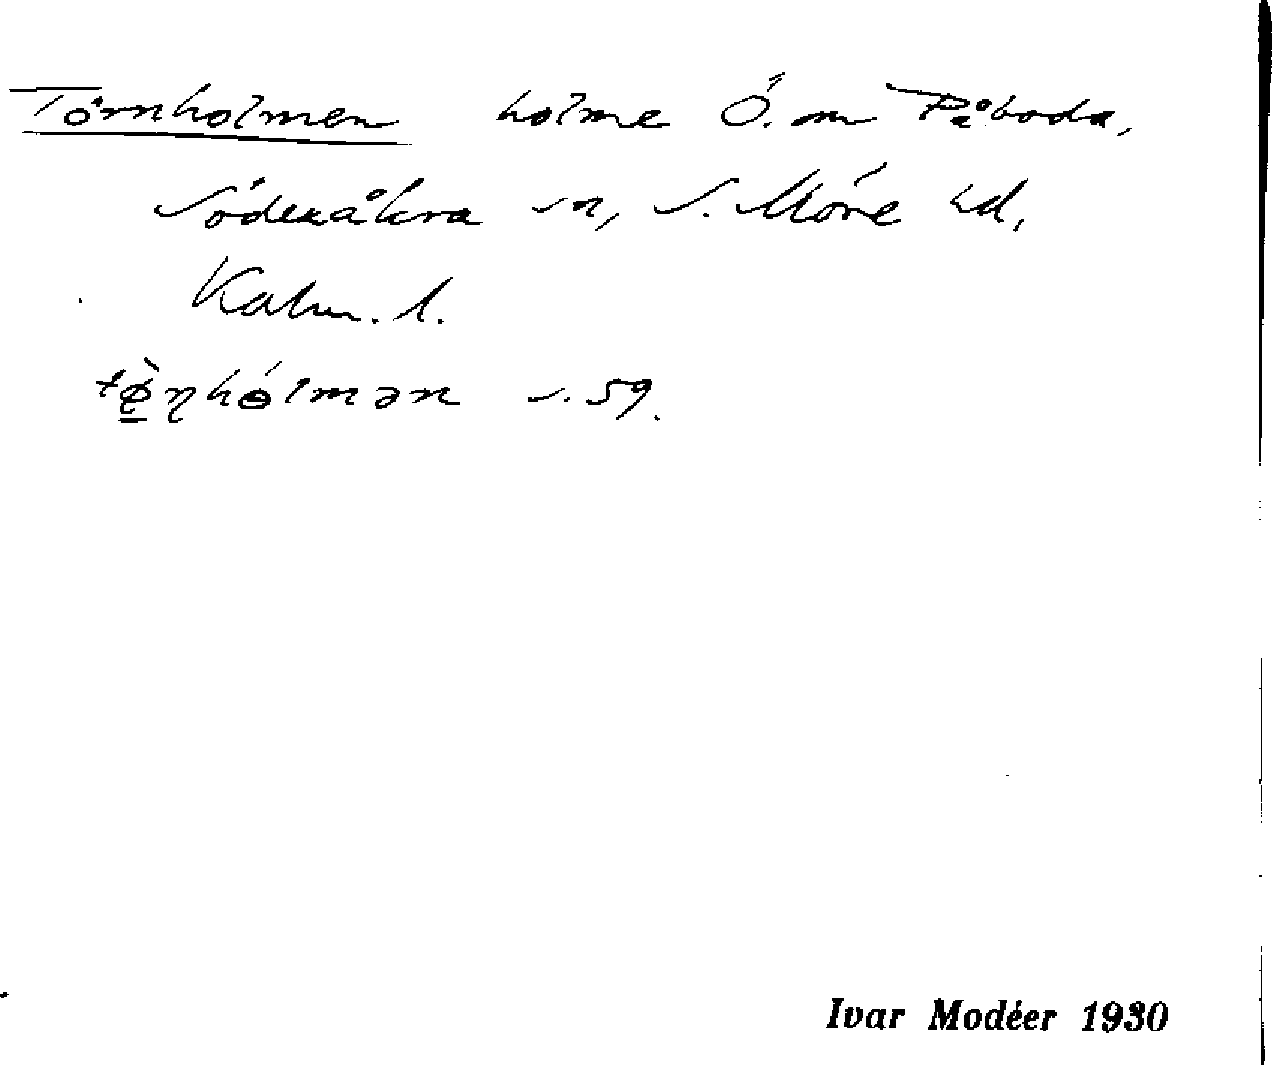 Törnholmen holme Ö. om Påboda,
Söderåkra sn, S. Möre hd,
Kalm. l.
tø̀ɳhólmən s. 59.
Ivar Modéer 1930